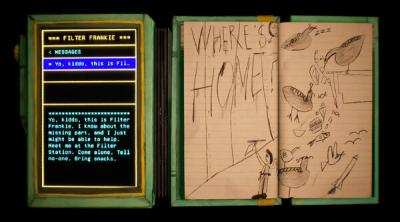 *** FILTER FRANKIE ***
< MESSAGES
* Yo, kiddo, this is Fil…
Yo, kiddo, this is Filter
Frankie. I know about the
missing part, and I just
might be able to help.
Meet me at the Filter
Station. Come alone. Tell
no-one. Bring snacks.
WHERE'S
HOME?
zzz